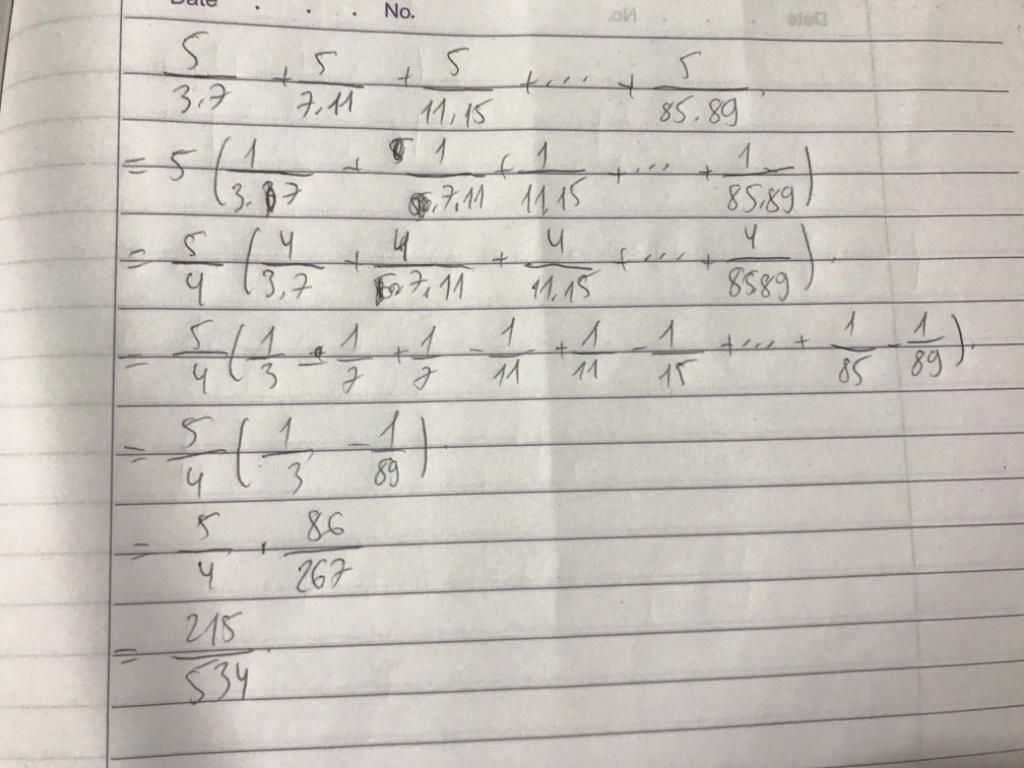 Date . . . No.
5/3.7 + 5/7.11 + 5/11.15 + ... + 5/85.89.
= 5 (1/3.7 + 1/7.11 + 1/11.15 + ... + 1/85.89)
= 5/4 (4/3.7 + 4/7.11 + 4/11.15 + ... + 4/8589).
= 5/4 (1/3 - 1/7 + 1/7 - 1/11 + 1/11 - 1/15 + ... + 1/85 - 1/89).
= 5/4 (1/3 - 1/89)
= 5/4 . 86/267
= 215/534.